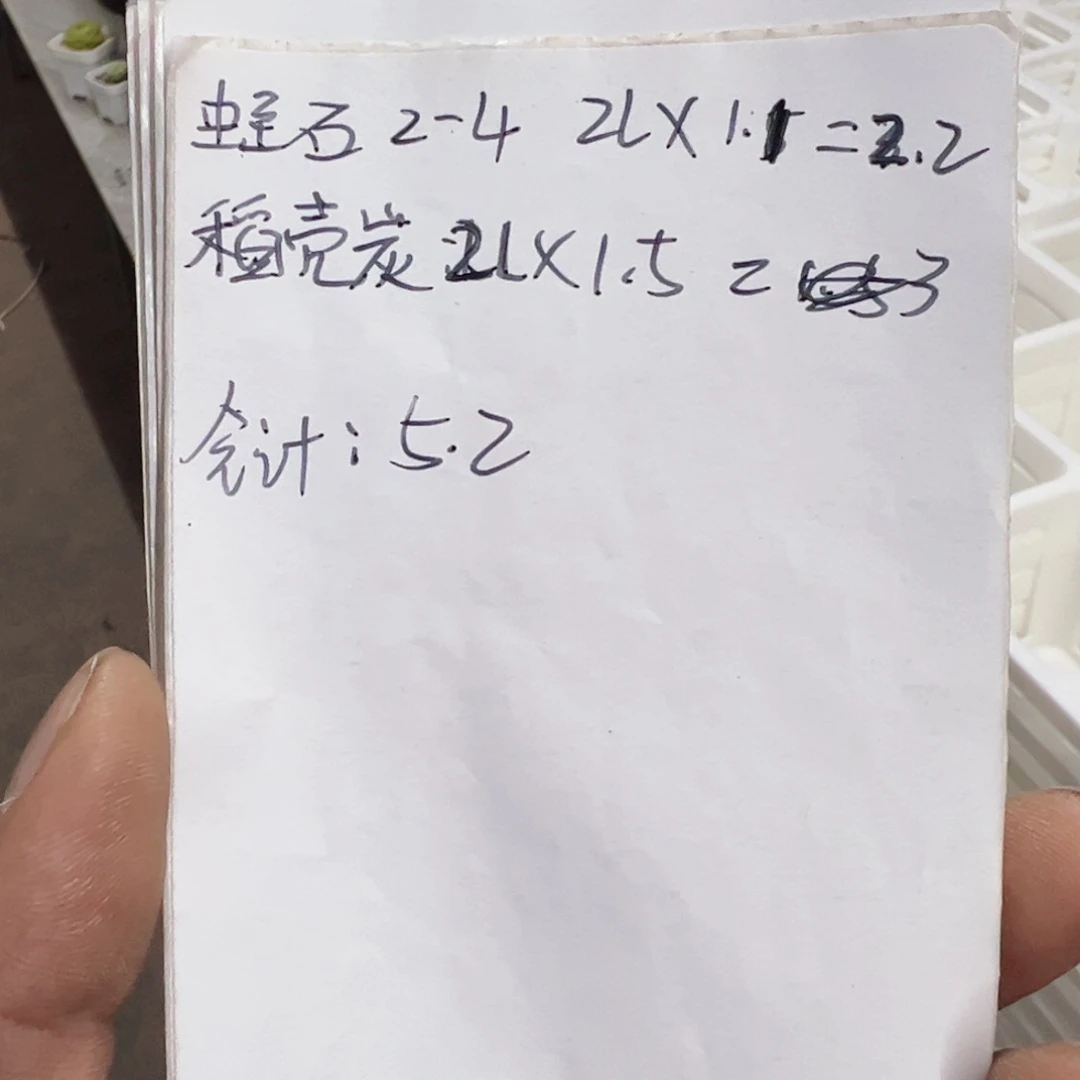 蛭石 2-4 2L×1.1=2.2
稻壳炭 2L×1.5=3
合计:5.2